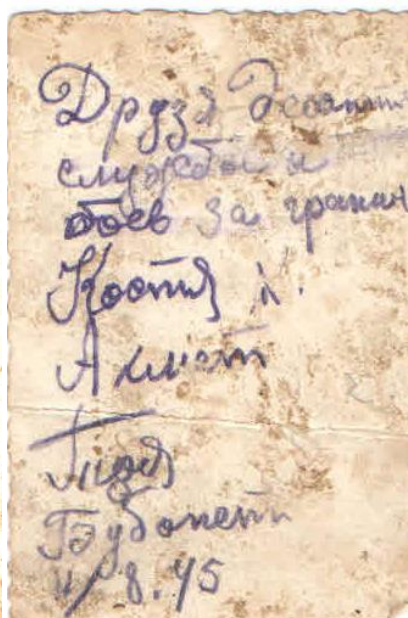 Друзя десантн
службы и
боев за границ
Костя и.
Ахмет
Будопешт
11/8.45